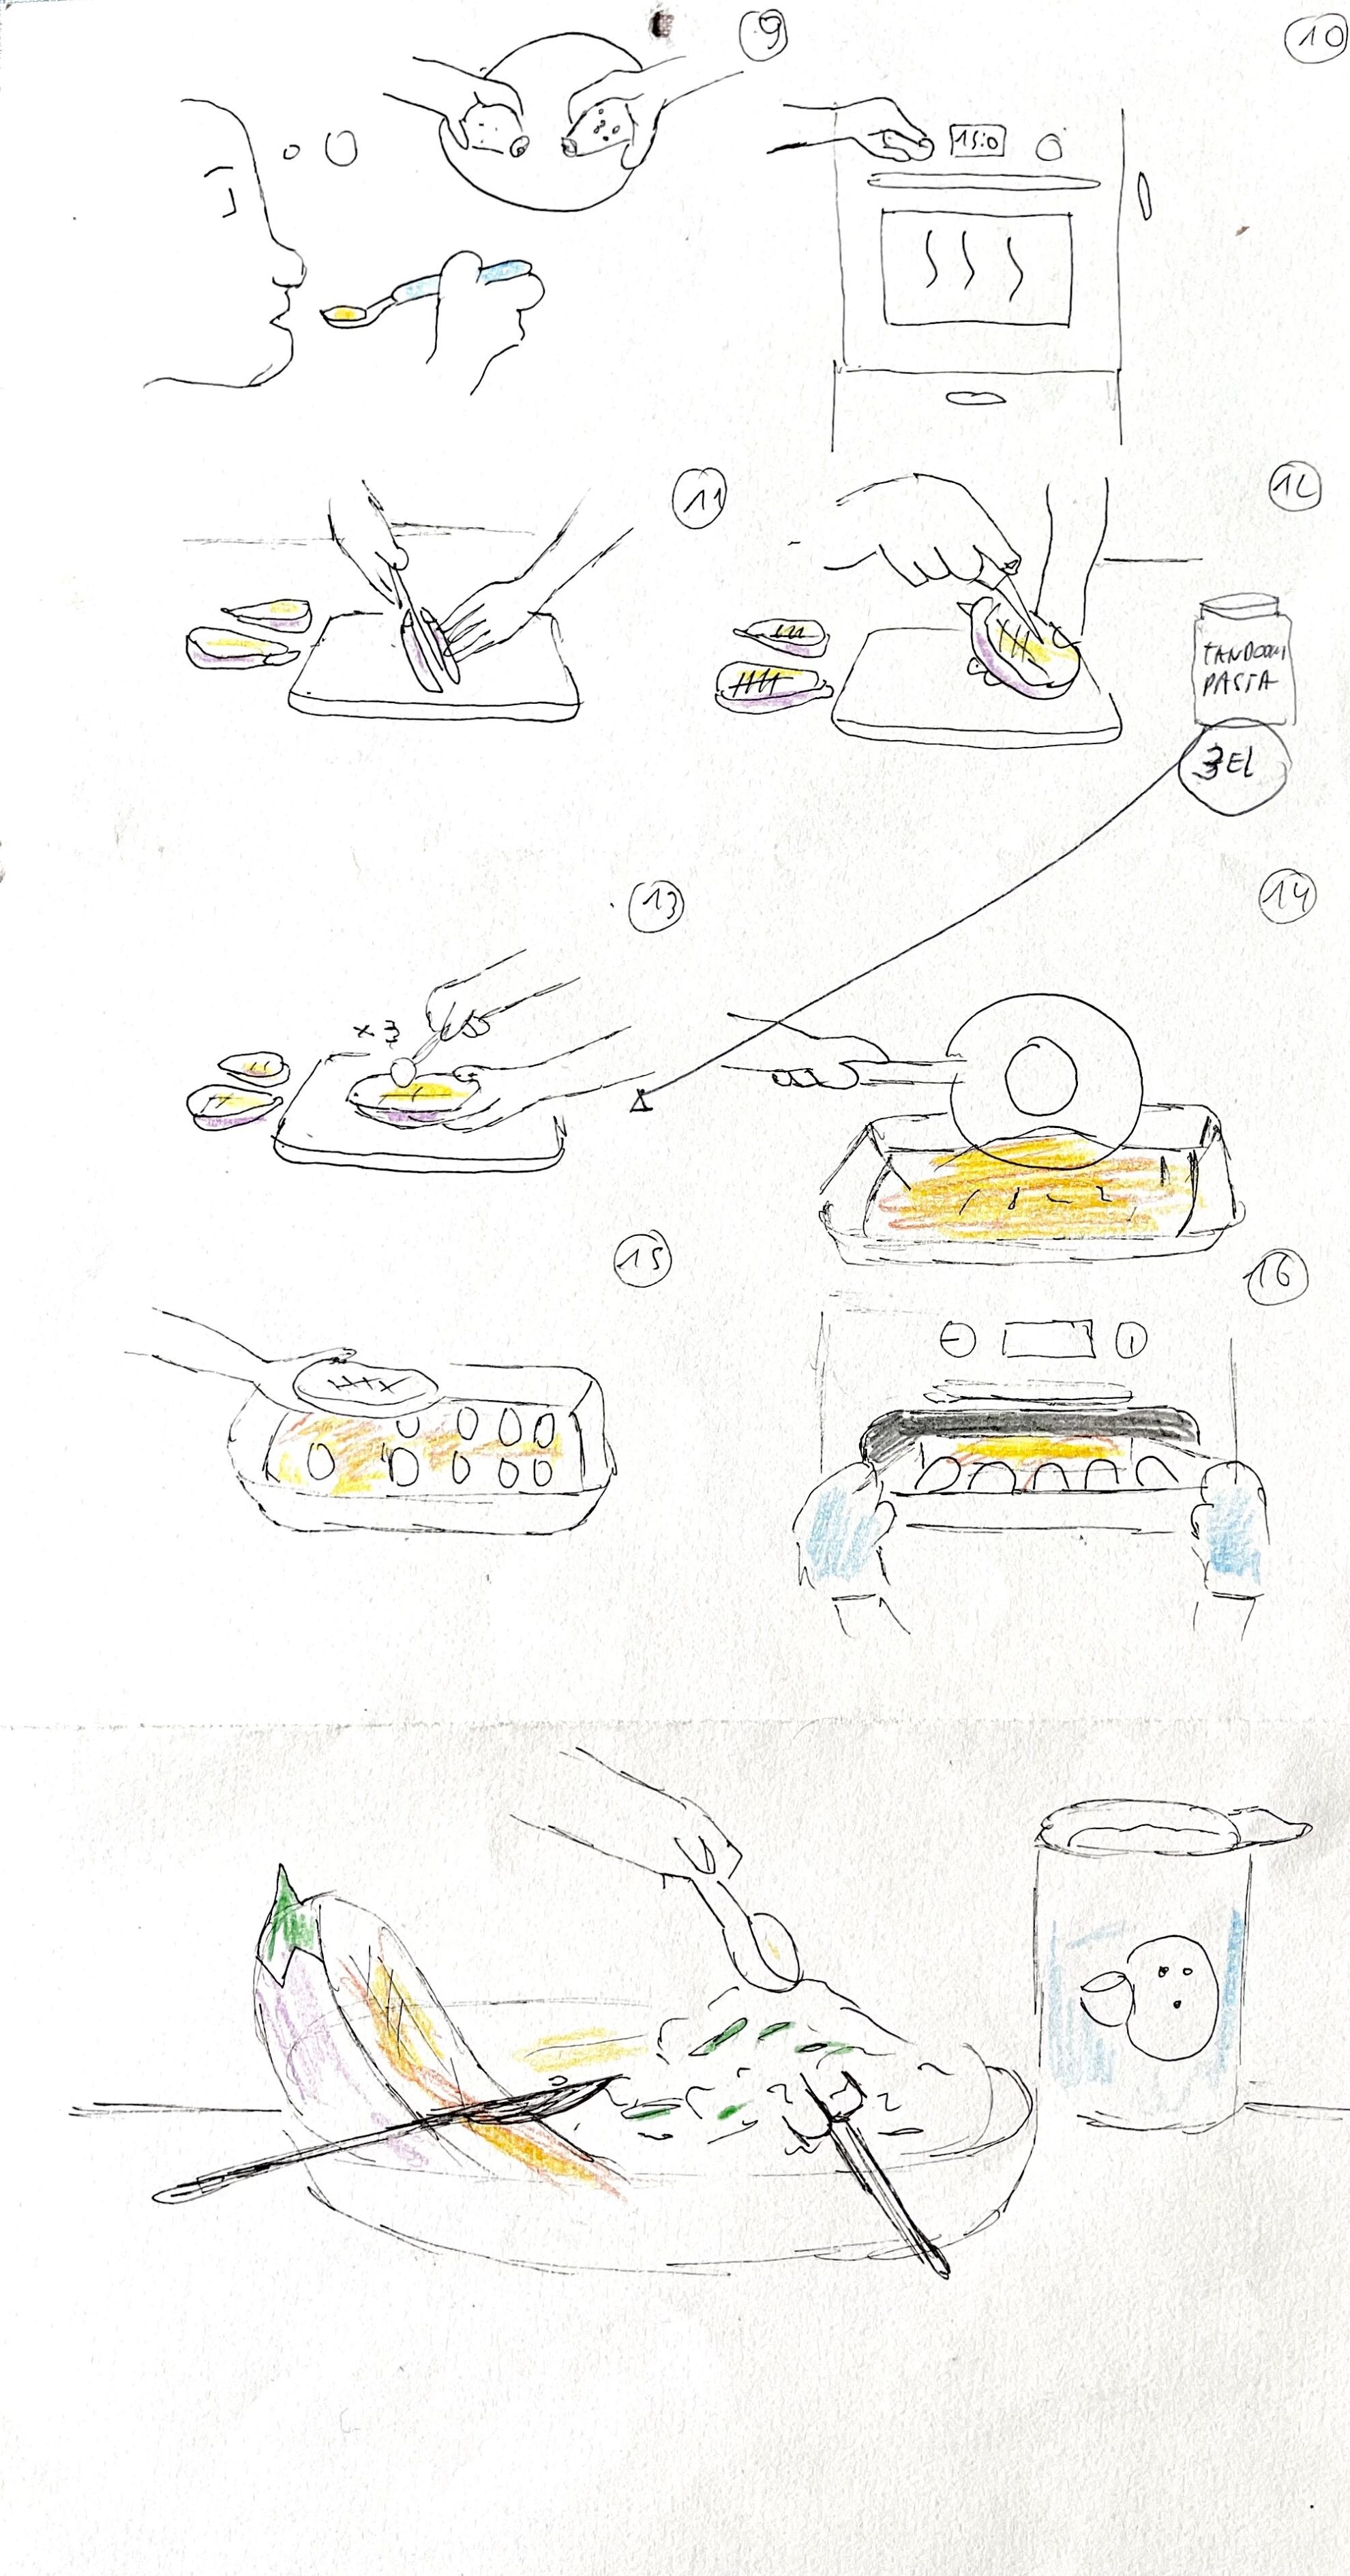 9
10
15:0
11
12
TANDOORI
PASTA
3EL
13
14
x3
15
16